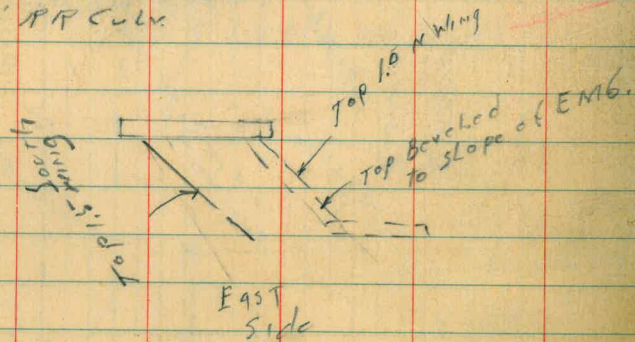 RR Culv.
Top 1.0 N Wing
Top Beveled
to slope of EMB.
Top 1.5
South
Wing
East
Side